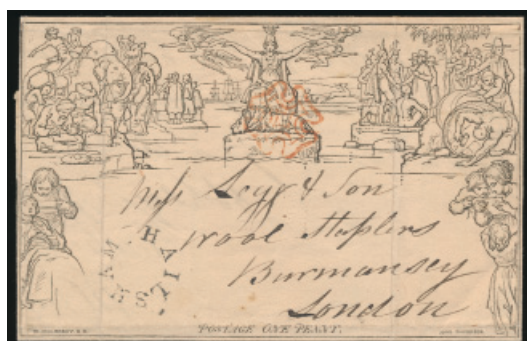 Mess Legg & Son
Wool Staplers
Burmansey
London
HAILSHAM
POSTAGE ONE PENNY.